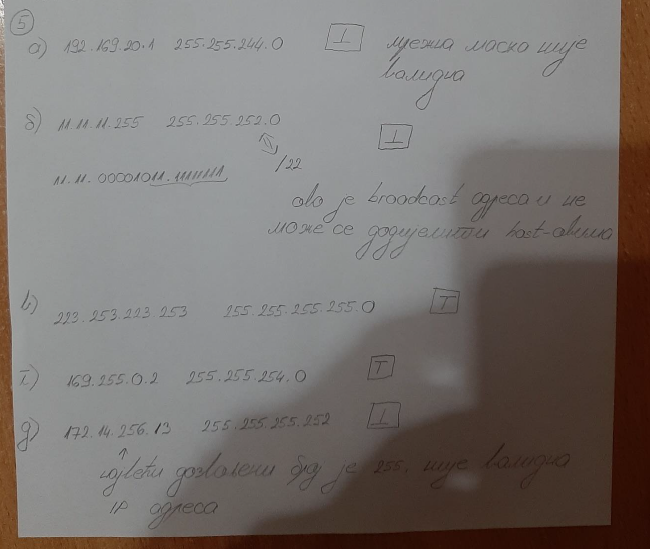 5
а) 192.169.20.1 255.255.244.0 ⊥ мрежна маска није
валидна
б) 11.11.11.255 255.255.252.0 ⊥
/22
11.11.00001011.11111111
ово је broadcast адреса и не
може се додијелити host-овима
в) 223.253.223.253 255.255.255.255.0 T
г) 169.255.0.2 255.255.254.0 T
д) 172.14.256.13 255.255.255.252 ⊥
највећи дозвољени број је 255, није валидна
IP адреса